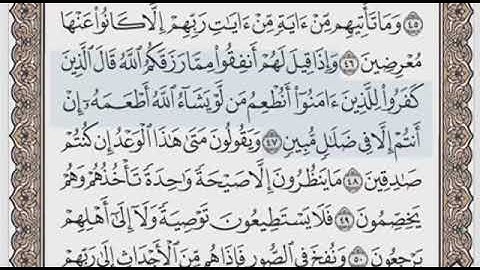 ﴿٤٥﴾ وَمَا تَأْتِيهِم مِّنْ ءَايَةٍ مِّنْ ءَايَٰتِ رَبِّهِمْ إِلَّا كَانُوا۟ عَنْهَا
مُعْرِضِينَ ﴿٤٦﴾ وَإِذَا قِيلَ لَهُمْ أَنفِقُوا۟ مِمَّا رَزَقَكُمُ ٱللَّهُ قَالَ ٱلَّذِينَ
كَفَرُوا۟ لِلَّذِينَ ءَامَنُوٓا۟ أَنُطْعِمُ مَن لَّوْ يَشَآءُ ٱللَّهُ أَطْعَمَهُۥٓ إِنْ
أَنتُمْ إِلَّا فِى ضَلَٰلٍ مُّبِينٍ ﴿٤٧﴾ وَيَقُولُونَ مَتَىٰ هَٰذَا ٱلْوَعْدُ إِن كُنتُمْ
صَٰدِقِينَ ﴿٤٨﴾ مَا يَنظُرُونَ إِلَّا صَيْحَةً وَٰحِدَةً تَأْخُذُهُمْ وَهُمْ
يَخِصِّمُونَ ﴿٤٩﴾ فَلَا يَسْتَطِيعُونَ تَوْصِيَةً وَلَآ إِلَىٰٓ أَهْلِهِمْ
يَرْجِعُونَ ﴿٥٠﴾ وَنُفِخَ فِى ٱلصُّورِ فَإِذَا هُم مِّنَ ٱلْأَجْدَاثِ إِلَىٰ رَبِّهِمْ